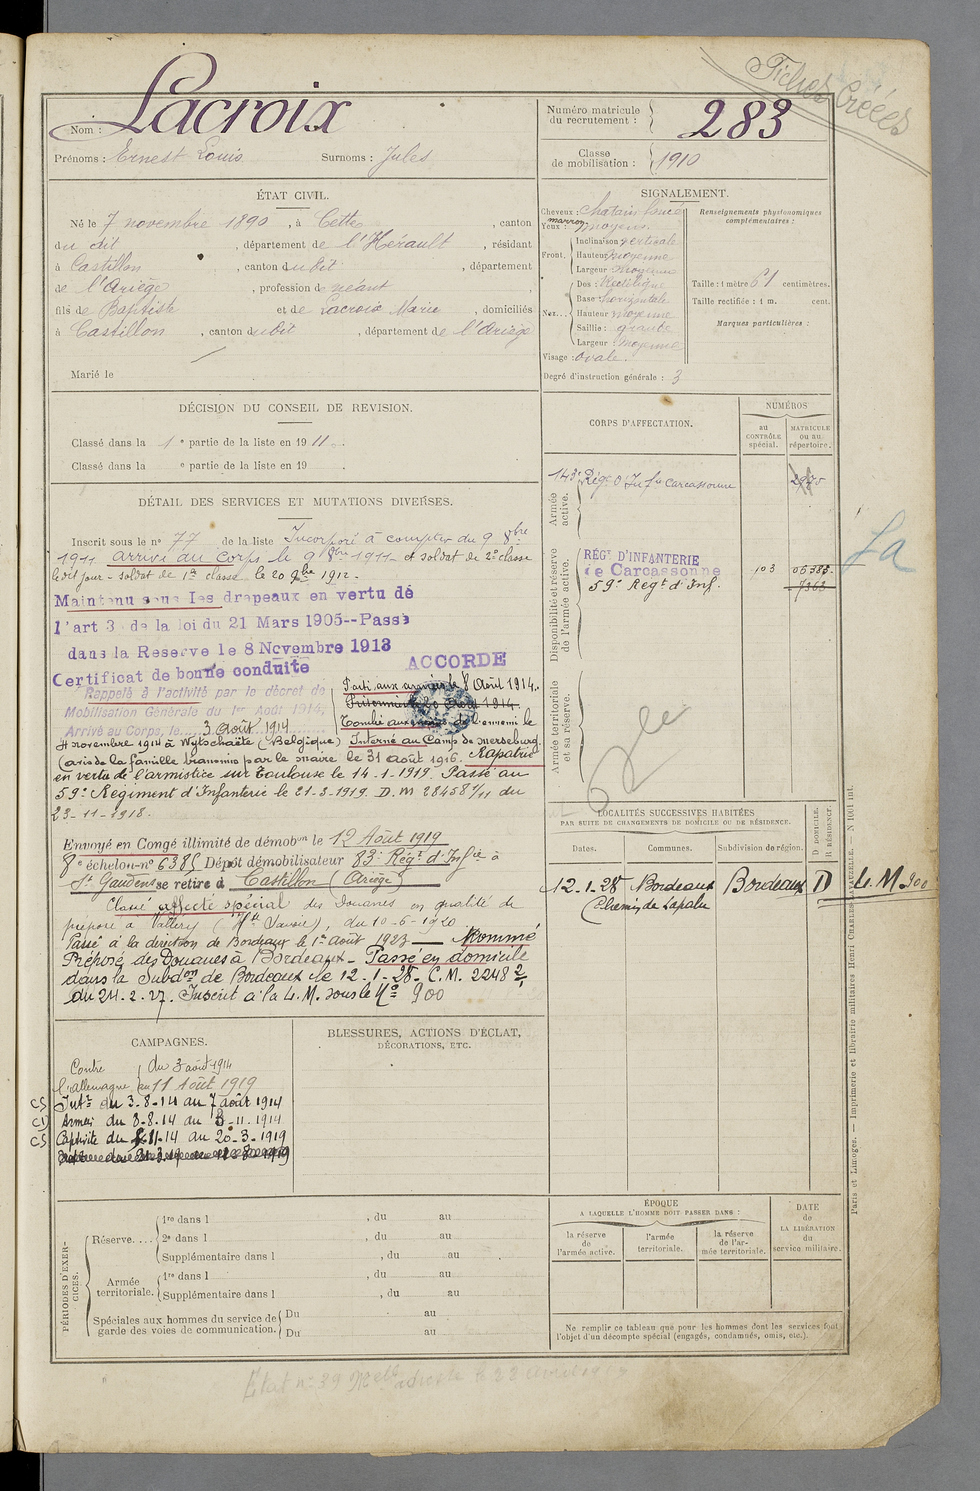 Fiches Créées
Nom : Lacroix
Prénoms : Ernest Louis Surnoms : Jules
Numéro matricule du recrutement : 283
Classe de mobilisation : 1910
ÉTAT CIVIL.
Né le 7 novembre 1890, à Cette, canton
du dit, département de l'Hérault, résidant
à Castillon, canton dudit, département
de l'Ariège, profession de néant
fils de Baptiste et de Lacroix Marie, domiciliés
à Castillon, canton dudit, département de l'Ariège
Marié le
SIGNALEMENT.
Cheveux : chatain foncé
Yeux : marron moyens
Front. Inclinaison verticale
Hauteur moyenne
Largeur moyenne
Nez... Dos : Rectiligne
Base : horizontale
Hauteur moyenne
Saillie : grande
Largeur : moyenne
Visage : ovale.
Degré d'instruction générale : 3
Renseignements physionomiques
complémentaires :
Taille : 1 mètre 61 centimètres.
Taille rectifiée : 1 m. cent.
Marques particulières :
DÉCISION DU CONSEIL DE REVISION.
Classé dans la 1e partie de la liste en 1911.
Classé dans la e partie de la liste en 19 .
DÉTAIL DES SERVICES ET MUTATIONS DIVERSES.
Inscrit sous le no 77 de la liste Incorporé à compter du 9 8bre
1911 arrivé au Corps le 9 8bre 1911 et soldat de 2e classe
le dit jour - soldat de 1e classe le 20 9bre 1912 -
Maintenu sous les drapeaux en vertu de
l'art 3 de la loi du 21 Mars 1905--Passé
dans la Reserve le 8 Novembre 1913
Certificat de bonne conduite ACCORDÉ
Rappelé à l'activité par le décret de
Mobilisation Générale du 1er Août 1914,
Arrivé au Corps, le 3 août 1914
Parti aux armées le 8 Août 1914.
Prisonnier 20 Août 1914
Tombé aux mains de l'ennemi le
4 novembre 1914 à Wytschaëte (Belgique) Interné au Camp de Merseburg
(avis de la famille transmis par le maire le 31 août 1916. Rapatrié
en vertu de l'armistice sur Toulouse le 14-1-1919. Passé au
59e Régiment d'Infanterie le 21-3-1919. D. M 28458 1/11 du
23-11-1918.
Envoyé en Congé illimité de démobon le 12 Août 1919
8e échelon-no 6385 Dépôt démobilisateur 83e Régt d'Infie à
St Gaudens se retire à Castillon (Ariège)
Classé affecté spécial des Douanes en qualité de
préposé à Vallery (Hte Savoie), du 10-6-1920
Passé à la direction de Bordeaux le 1er août 1923 — Nommé
Préposé des Douanes à Bordeaux - Passé en domicile
dans la Subdon de Bordeaux le 12-1-28. C.M. 2248 2/1
du 24-2-27. Inscrit à la L.M. sous le No 900
CORPS D'AFFECTATION.
NUMÉROS
au CONTRÔLE spécial.
MATRICULE ou au répertoire.
Armée active.
143e Rég. d'Infie Carcassonne 2975
Disponibilité et réserve de l'armée active.
RÉGt D'INFANTERIE
de Carcassonne 103 06388
59e Régt d'Inf. 7363
La
Armée territoriale et sa réserve.
LOCALITÉS SUCCESSIVES HABITÉES
PAR SUITE DE CHANGEMENTS DE DOMICILE OU DE RÉSIDENCE.
Dates. Communes. Subdivision de région. D DOMICILE. R RÉSIDENCE.
12-1-28 Bordeaux Bordeaux D L.M 900
Chemin de Lapalu
CAMPAGNES.
Contre l'allemagne du 3 août 1914 au 11 Août 1919
CS Intre du 3-8-14 au 7 août 1914
CD Armées du 8-8-14 au 3-11-1914
CS Captivité du 4-11-14 au 20-3-1919
BLESSURES, ACTIONS D'ÉCLAT,
DÉCORATIONS, ETC.
PÉRIODES D'EXERCICES.
Réserve.... 1re dans l , du au
2e dans l , du au
Supplémentaire dans l , du au
Armée territoriale. 1re dans l , du au
Supplémentaire dans l , du au
Spéciales aux hommes du service de garde des voies de communication. Du au
Du au
ÉPOQUE
A LAQUELLE L'HOMME DOIT PASSER DANS :
la réserve de l'armée active. l'armée territoriale. la réserve de l'armée territoriale.
DATE de LA LIBÉRATION du service militaire.
Ne remplir ce tableau que pour les hommes dont les services font
l'objet d'un décompte spécial (engagés, condamnés, omis, etc.).
Paris et Limoges. — Imprimerie et librairie militaires Henri CHARLES-LAVAUZELLE.
Etat no 39